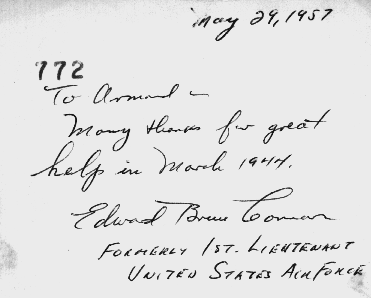 May 29, 1957
772
To Armand –
Many thanks for great
help in March 1944.
Edward
FORMERLY 1ST. LIEUTENANT
UNITED STATES AIR FORCE